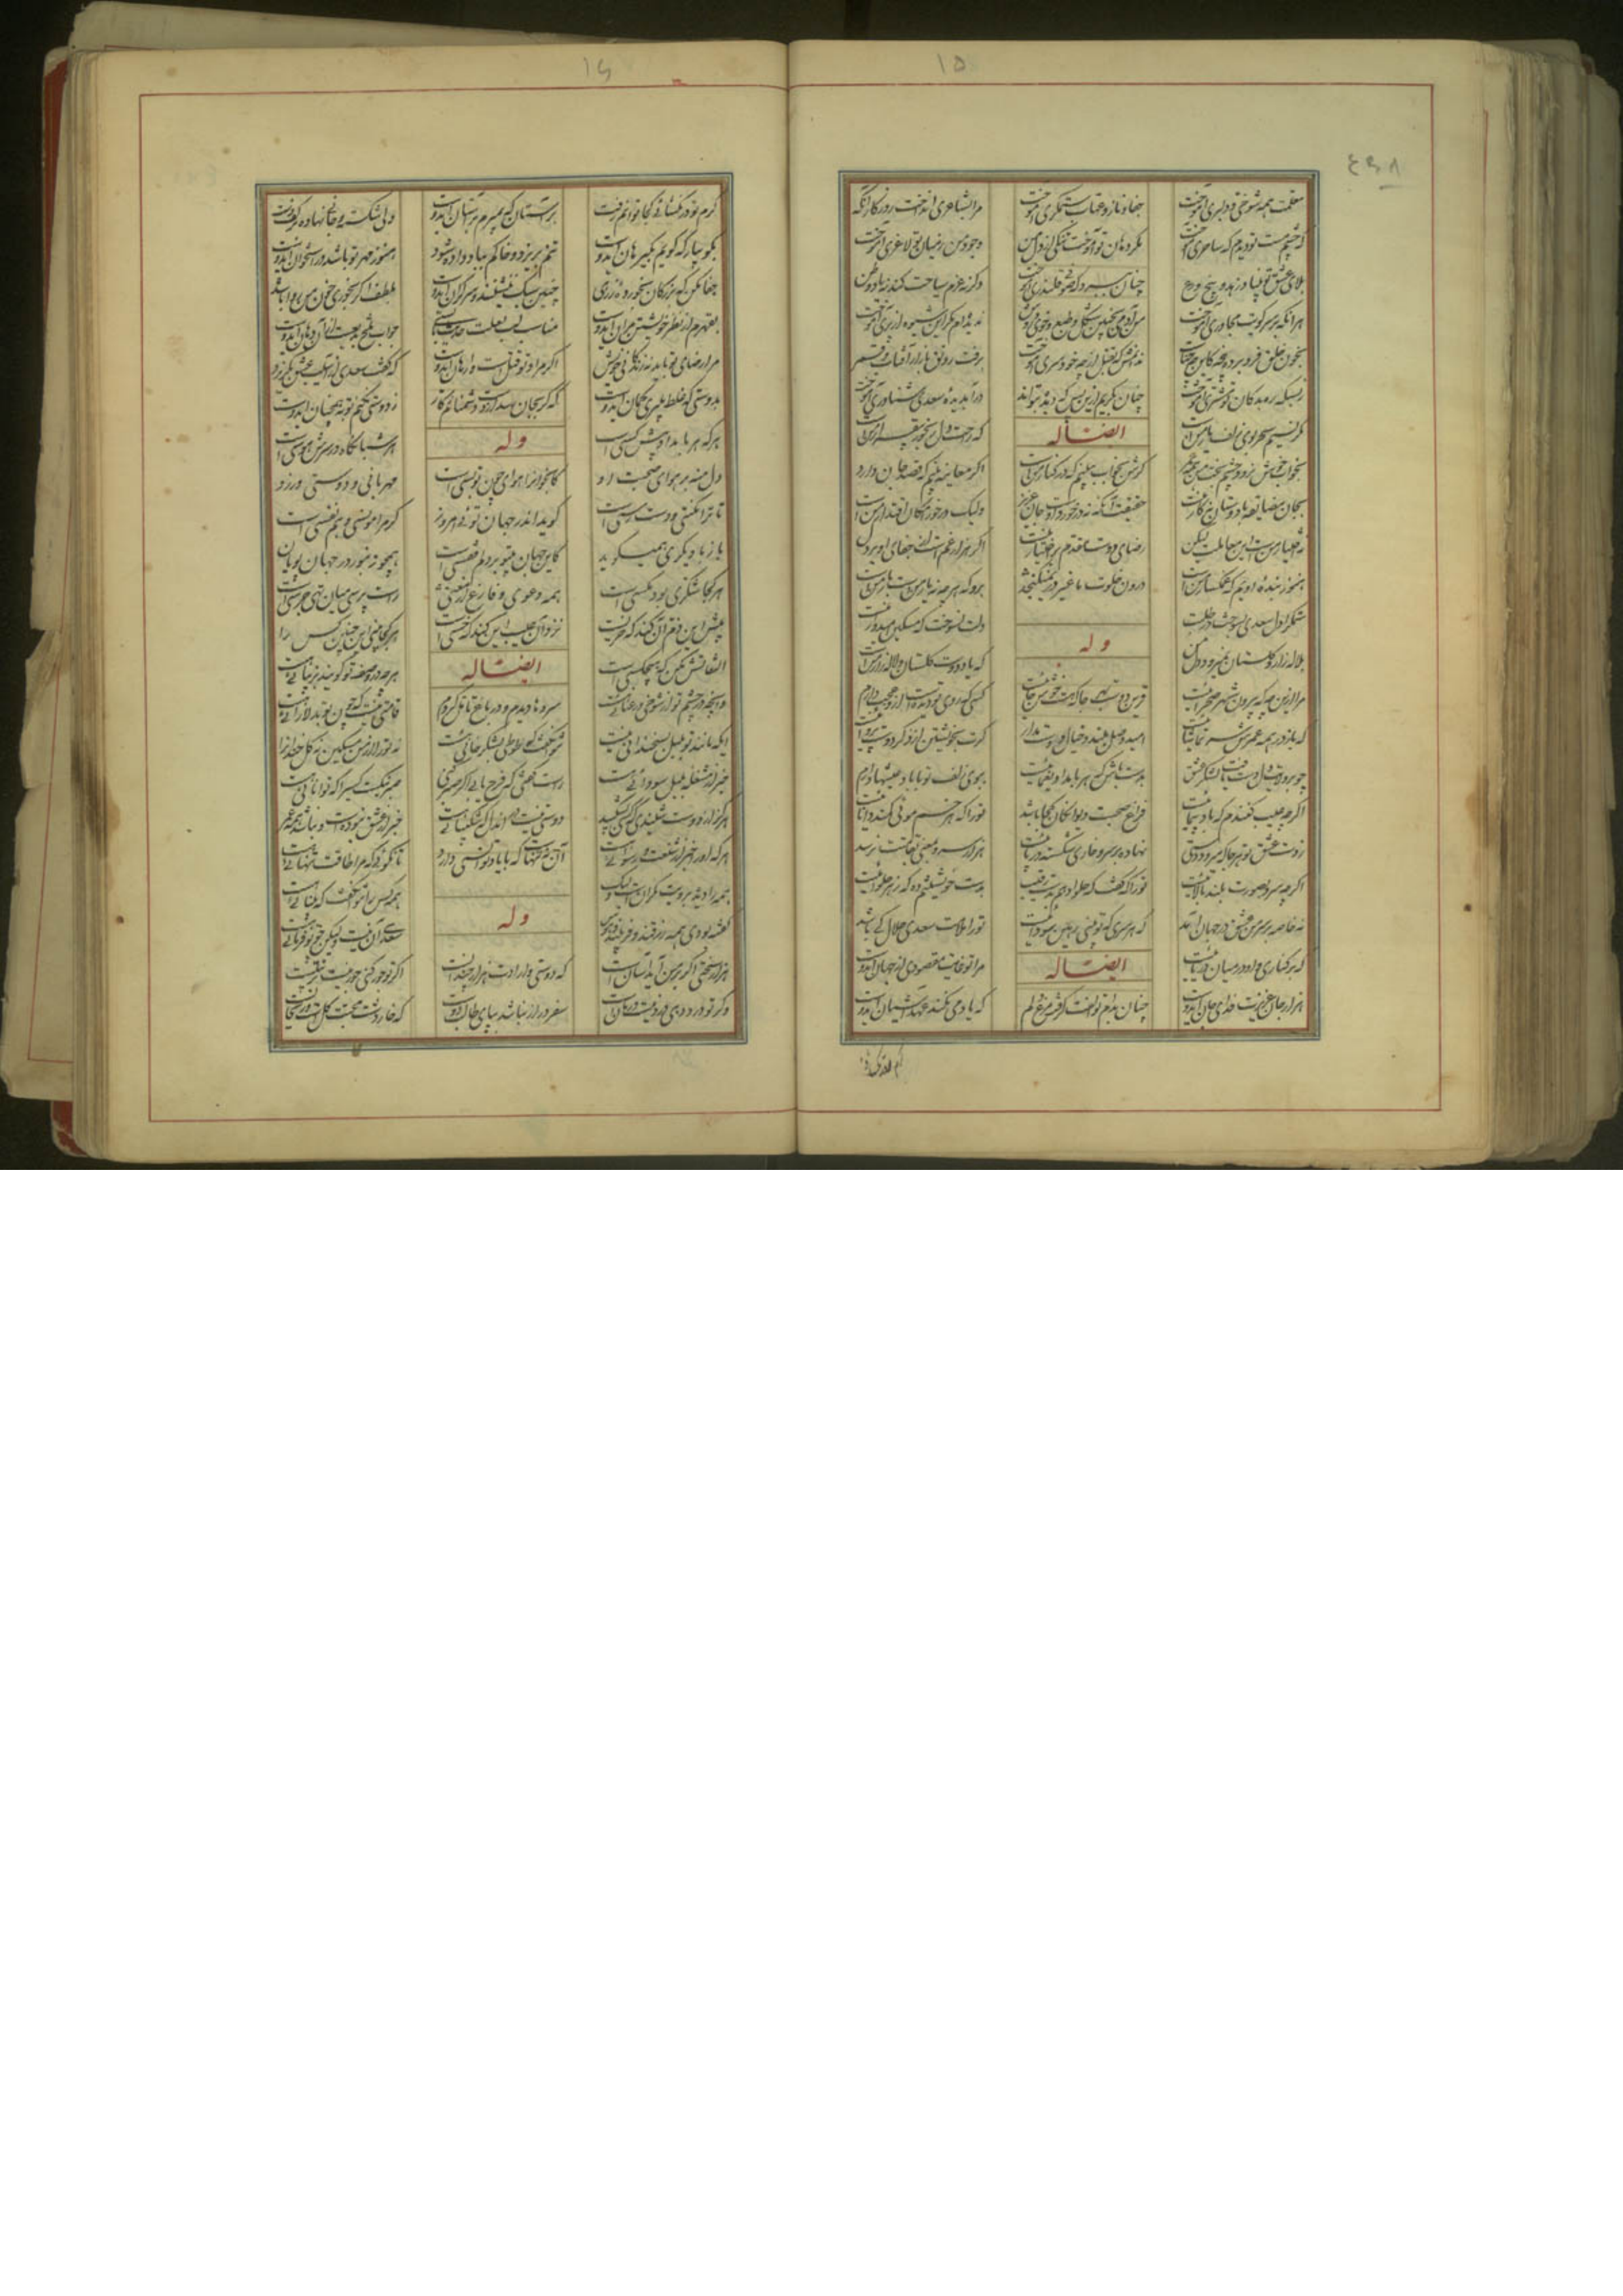 ۱۵
معلمت همه شوخی و دلبری آموخت
جفا و ناز و عتاب و ستمگری آموخت
مرا بشاعری آموخت روزگار آنگه
که چشم مست تو دیدم که ساحری آموخت
مگر دهان تو آموخت تنگی از دل من
وجود من ز میان تو لاغری آموخت
بلای عشق تو بنیاد زهد و بیخ ورع
چنان ببرد که صوفی قلندری آموخت
دگر نه عزم سیاحت کند نه یاد وطن
هر آنکه بر سر کویت مجاوری آموخت
من آدمی بچنین شکل و طبع و خوی و روش
ندیده ام مگر این شیوه از پری آموخت
بخون خلق فرو برده پنجه کاین حناست
ندانمش که بقتل از چه خودسری آموخت
برفت رونق بازار آفتاب و قمر
ز بسکه ره بدکان تو مشتری آموخت
چنان بگریم ازین پس که دیده بتواند
در آب دیده سعدی شناوری آموخت
مگر نسیم سحر بوی زلف یار منست
ایضاله
که راحت دل رنجور بیقرار منست
بخواب خوش نرود چشم بخت من همه عمر
گرش بخواب ببینم که در کنار منست
اگر معاینه بینم که قصد جان دارد
بجان مضایقه با دوستان نه کار منست
حقیقت آنکه نه در خورد اوست جان عزیز
ولیک درخور امکان اقتدار منست
نه اختیار منست این معاملت لیکن
رضای دوست مقدم بر اختیار منست
اگر هزار غم است از جفای او بر دل
هنوز بنده اویم که غمگسار منست
درون خلوت ما غیر در نمیگنجد
برو که هر چه نه یار منست بار منست
ستمگرا دل سعدی بسوخت در طلبت
دلت نسوخت که مسکین امیدوار منست
بلاله زار و گلستان نمیرود دل من
وله
که یاد دوست گلستان و لاله زار منست
مرا ازین چه که بیرون شهر صحرائیست
قرین دوست بهر جا که هست خوش جائیست
کسی که روی تو دیده است ازو عجب دارم
که باز در همه عمرش سر تماشائیست
امید وصل مبند و خیال دوست مدار
گرت بخویشتن از ذکر دوست پروائیست
چو بر ولایت دل دست یافت لشکر عشق
بدست باش که هر بامداد یغمائیست
ببوی زلف تو با باد عیشها دارم
اگر چه عیب کنندم که بادپیمائیست
فراغ صحبت دیوانگان کجا باشد
تو را که هر خم موئی کمند دانائیست
ز دست عشق تو هر جا که میرود دستی
نهاده بر سر و خاری شکسته در پائیست
هزار سرو بمعنی بقامتت نرسد
اگر چه سرو بصورت بلند بالائیست
تو را که گفت که حلوا دهم بدست رقیب
بدست خویشتنم ده که زهر حلوائیست
نه خاصه بر سر من عشق در جهان آمد
که هر سری که تو بینی رهین سودائیست
تو را ملامت سعدی حلال کی باشد
که بر کناری و او در میان دریائیست
ایضاله
مرا تو غایت مقصودی از جهان ایدوست
هزار جان عزیزت فدای جان ایدوست
چنان بدام تو الفت گرفت مرغ دلم
که یاد می نکند عهد آشیان ایدوست
۱۶
گرم تو در نگشائی کجا توانم رفت
بر آستان که بمیرم بر آستان ایدوست
دلی شکسته و جانی نهاده بر کف دست
بگو بیار که گویم بگیر هان ایدوست
تنم بریزد و خاکم بباد داده شود
هنوز مهر تو باشد در استخوان ایدوست
جفا مکن که بزرگان بخرده رزی
چنین سبک ننشینند و سرگران ایدوست
بلطف اگر بخوری خون من روا باشد
بقهرم از نظر خویشتن مران ایدوست
مناسب لب لعلت حدیث بایستی
جواب تلخ بدیعست از آن دهان ایدوست
مرا رضای تو باید نه زندگانی خویش
اگر مراد تو قتل است وارهان ایدوست
که گفت سعدی از آسیب عشق بگریزد
بدوستی که غلط میبری گمان ایدوست
که گر بجان رسد از دست دشمنانم کار
ز دوستی نکنم توبه همچنان ایدوست
هر که هر بامداد پیش کسی است
وله
هر شبانگاه در سرش هوسی است
دل منه بر هوای صحبت او
هوای چون تو بسی است
مهربانی و دوستی ورزد
تا ترا مکنتی و دست رسی است
گوید اندر جهان توئی امروز
گر مرا مونسی و هم نفسی است
باز با دیگری همیگوید
کاین جهان بیتو بر دلم قفسی است
همچو زنبور در جهان پویان
هر کجا شکری بود مگسی است
همه دعوی و فارغ از معنی
راست پرسی میان تهی جرسی است
پیش این ذم آن کند که خریست
نزد آن عیب این کند که خسی است
هر کجا بینی این چنین کس را
التفاتش مکن که هیچکسی است
ایضاله
هر چه در وصف تو گویند بزیبائی هست
وانچه در چشم تو از شوخی و رعنائی هست
سروها دیدم در باغ تامل کردم
قامتی نیست که چون تو بدلارائی هست
ایکه مانند تو بلبل بسخندانی نیست
نتوان گفت که طوطی بشکرخائی هست
نه تو را از من مسکین نه گل خندان را
خبر از مشغله بلبل سودائی هست
راست گفتی که فرج یابی اگر صبر کنی
صبر نیکست کسی را که توانائی هست
هرگز از دوست شنیدی که کسی بشکیبد
دوستی نیست در آن دل که شکیبائی هست
خبر از عشق نبودست و نباشد همه عمر
هر که او را خبر از شنعت و رسوائی هست
آن نه تنهاست که با یاد تو انسی دارد
تا نگوئی که مرا طاقت تنهائی هست
همه را دیده برویت نگرانست ولیک
همه کس را نتوان گفت که بینائی هست
گفته بودی همه زرقند و فریبند و فسوس
وله
سعدی آن نیست ولیکن چو تو فرمائی هست
هزار سختی اگر بر من آید آسانست
که دوستی و ارادت هزار چندانست
اگر تو جور کنی جور نیست تربیتست
وگر تو درد دهی درد نیست درمانست
سفر دراز نباشد بپای طالب دوست
که خار دشت محبت گل است و ریحانست